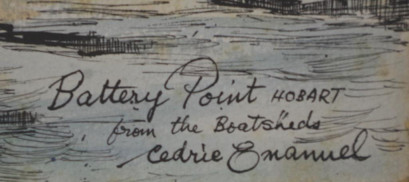 Battery Point HOBART
from the Boatsheds
Cedric Emanuel